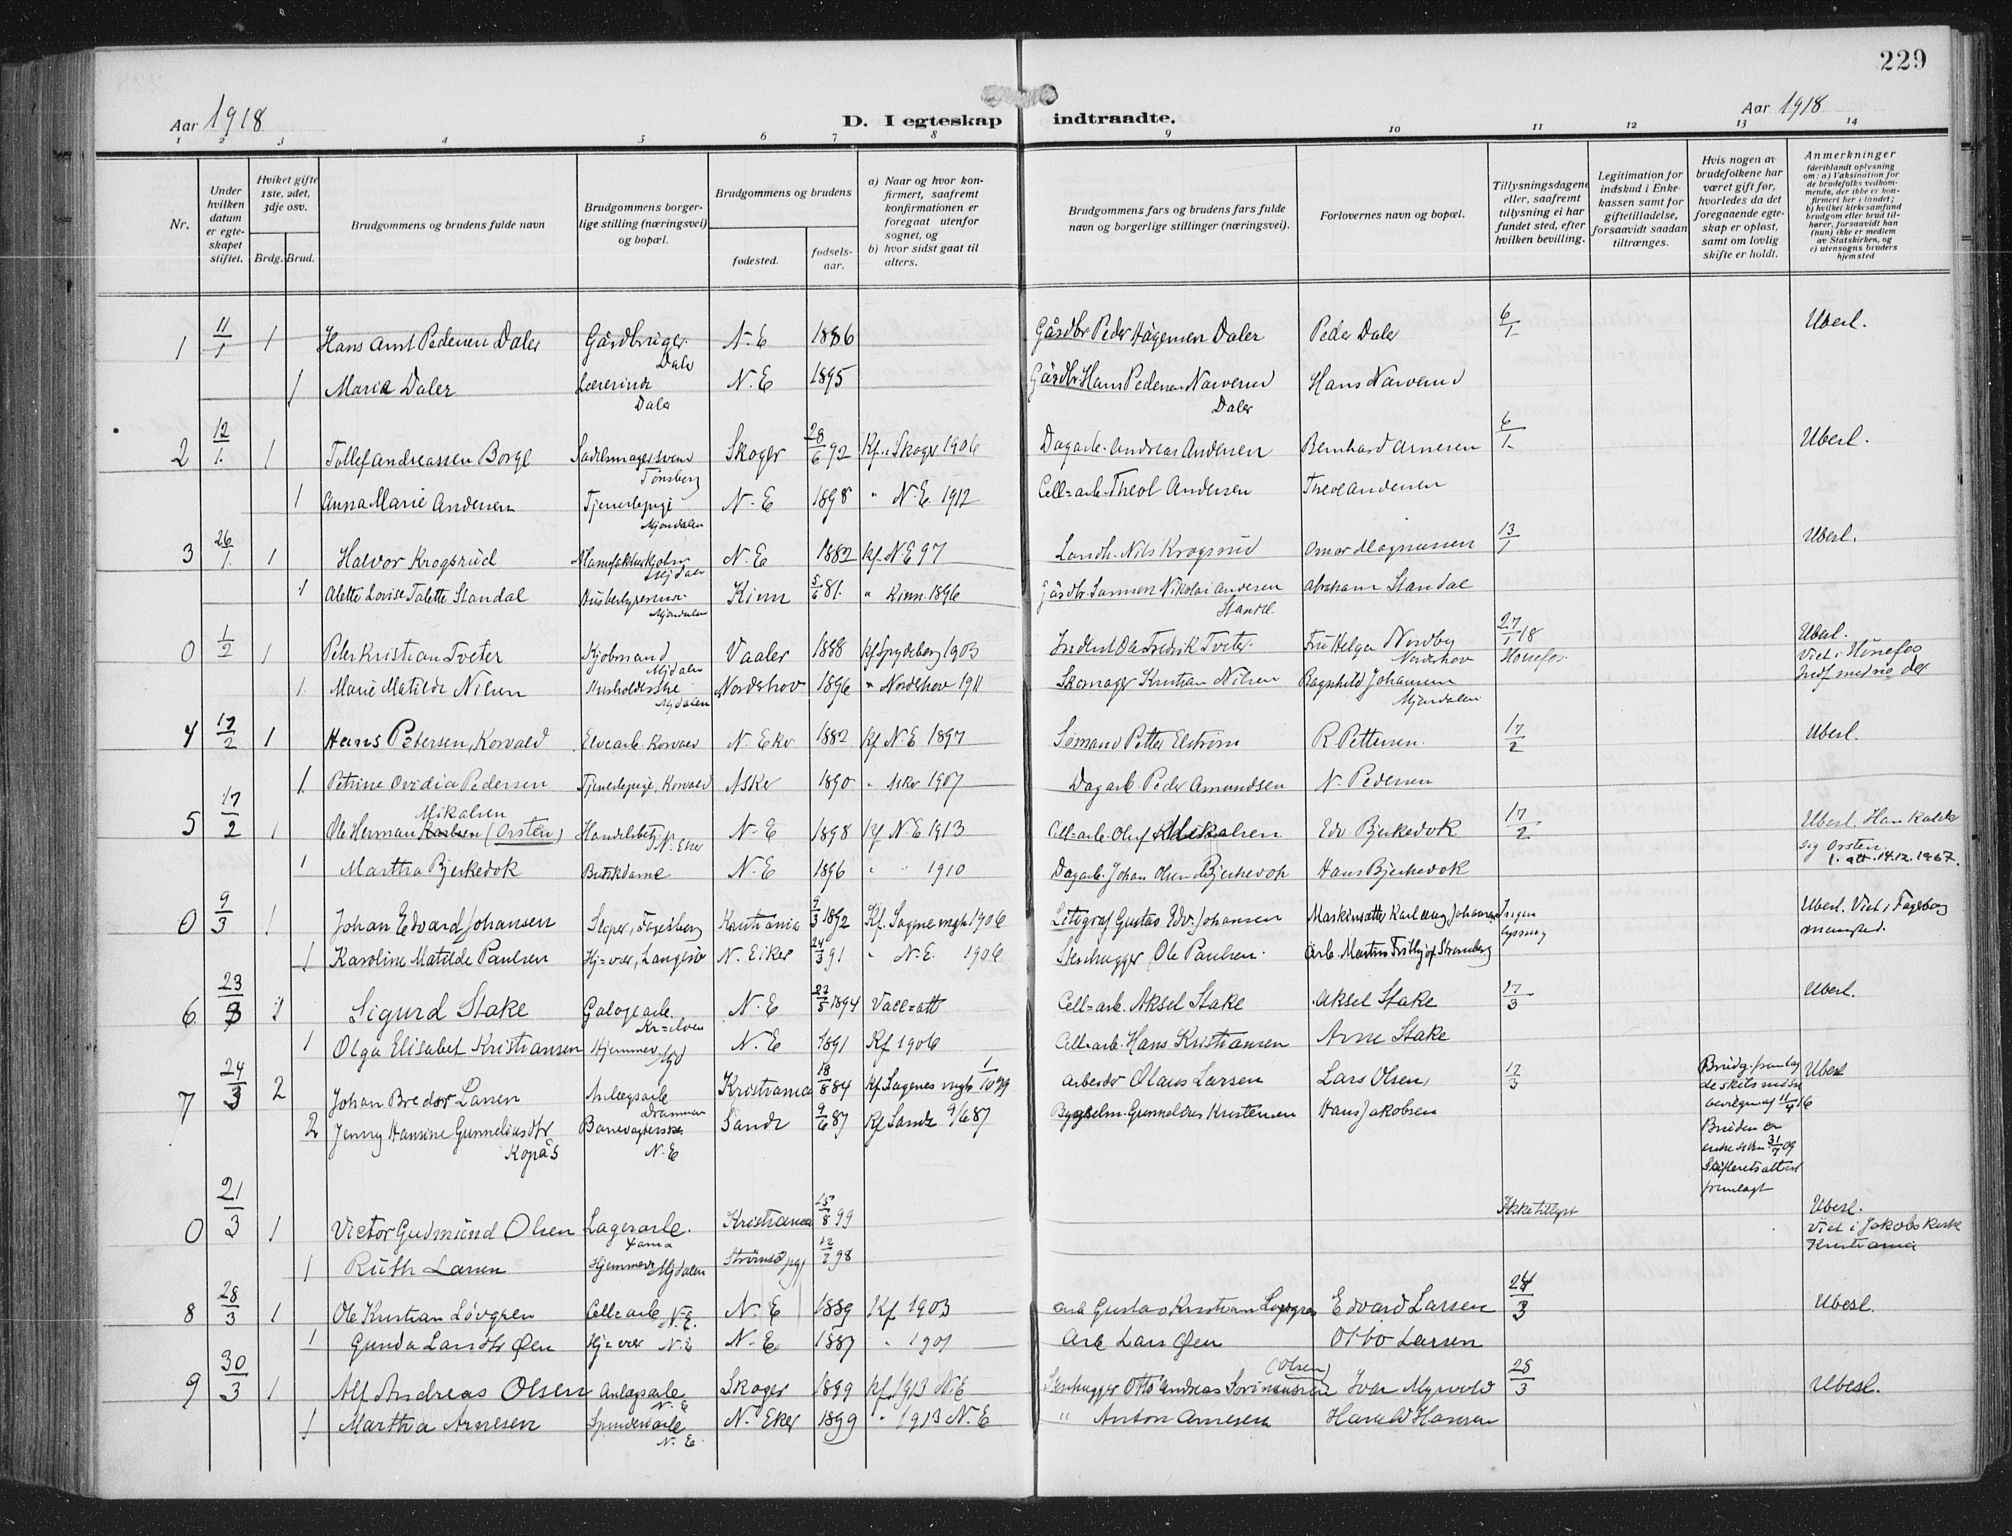 229
Aar 1918
D. I egteskap indtraadte.
Aar 1918
1 2 3 4 5 6 7 8 9 10 11 12 13 14
Nr.
Under hvilken datum er egteskapet stiftet.
Hviket gifte 1ste, 2det, 3dje osv.
Brdg. Brud.
Brudgommens og brudens fulde navn
Brudgommens borgerlige stilling (næringsvei) og bopæl.
Brudgommens og brudens
fødested.
fødselsaar.
a) Naar og hvor konfirmert, saafremt konfirmationen er foregaat utenfor sognet, og
b) hvor sidst gaat til alters.
Brudgommens fars og brudens fars fulde navn og borgerlige stillinger (næringsvei).
Forlovernes navn og bopæl.
Tillysningsdagene eller, saafremt tillysning ei har fundet sted, efter hvilken bevilling.
Legitimation for indskud i Enkekassen samt for giftetilladelse, forsaavidt saadan tiltrænges.
Hvis nogen av brudefolkene har været gift før, hvorledes da det foregaaende egteskap er opløst, samt om lovlig skifte er holdt.
Anmerkninger
(deriblandt oplysning om: a) Vaksination for de brudefolks vedkommende, der ikke er konfirmert her i landet; b) hvilket kirkesamfund brudgom eller brud tilhører, forsaavidt han (hun) ikke er medlem av Statskirken, og c) utensogns bruders hjemsted
1 11/1 1 Hans Daler Gårdbruger Daler N. E 1886 Gårdbr Peder Daler Peder Daler 6/1 Ubesl.
1 Maria Daler Lærerinde Daler N. E 1895 Gårdbr Hans Pedersen Narverud Daler Hans Narverud
2 12/1 1 Tollef Andreassen Borge Sadelmagersvend Tønsberg Skoger 28/6 92 Kf. Skoger 1906 Dagarb. Andreas Andersen Bernhard Arnesen 6/1 Ubesl.
1 Anna Marie Andersen Tjenestepige Mjøndalen N. E 1898 " N. E. 1912 Cell=arb. Theol Andersen Theol Andersen
3 26/1 1 Halvor Krogsrud N. E 1882 Kf. N E 97 Landh. Nils Krogsrud Omar Magnussen 13/1 Ubesl.
1 Alette Lovise Talette Standal Mjøndalen Kinn 5/6 81. " Kinn. 1896 Gårdbr. Nikolai Andersen Standal Abraham Standal
0 1/2 1 Peter Kristian Tveter Kjøbmand Mjdalen Vaaler 1888 Kf 1903 Ole Fredrik Tveter Fru Helga Nordby Norderhov 27/1 18 Hønefos Ubesl. Viet i Hønefos
1 Marie Matilde Nilsen Mjdalen Norderhov 1896 " Norderhov 1911 Skomager Kristian Nilsen Ragnhild Johansen Mjøndalen
4 17/2 1 Hans Petersen, Korvald Elvearb. Korvald N. Eker 1882 Kf N. E 1897 Sømand Petter Elstrøm R. Pettersen. 17/2 Ubesl.
1 Petrine Ovidia Pedersen Tjenestepige, Korvald Asker 1890 " Asker 1907 Dagarb Peder Amundsen N. Pedersen
5 17/2 1 Ole Herman Mikalsen (Orsten) Handelsbetj. N. Eker N. E 1898 Kf N. E 1913 Cell=arb. Oluf Mikalsen Edv. Bjerkedok 17/2 Ubesl. Han kalder sig Orsten 14.12.1967.
1 Martha Bjerkedok Butikdame N. E 1896 " " 1910 Dagarb. Johan Olsen Bjerkedok Hans Bjerkedok
0 9/3 1 Johan Edvard Johansen Støper, Fagerberg Kristiania 9/3 1892 Kf. Sagene mgh 1906 Litograf Gustav Edv. Johansen Ingen lysning Ubesl. Viet i Fagerborg menighed.
1 Karoline Matilde Paulsen Hj=vær, Langesø N. Eiker 24/3 91 " N. E. 1906 Stenhugger Ole Paulsen. Arb. Martius Fritjhof Strømberg
6 23/3 1 Sigurd Stake Galogearb. Kr=elven N. E 27/5 1894 Vacc=att Cell=arb. Aksel Stake Aksel Stake 17/3 Ubesl.
1 Olga Elisabet Kristiansen Hjemmev N. E 1891 Kf 1906 Cell=arb. Hans Kristiansen Arne Stake
7 24/3 2 Johan Breder Larsen Anlægsarb Drammen Kristiania 18/8 84 Kf. Sagenes mgh 1/10 99 Arbeider Olaus Larsen Lars Olsen, 17/3 Ubesl
2 Jenny Hansine Gunneliusdtr Kopås N. E Sande 9/6 87 Kf Sande 9/6 87 Bygselm. Gunnelius Kristensen Hans Jakobsen Bruden er 31/7 09 Skifteretsattest fremlagt
0 21/3 1 Victor Gudmund Olsen Lagerarb. Kristiania 15/8 99 Ikke tillyst Ubesl. Viet i Jakobs kirke Kristiania
1 Ruth Larsen Hjemmev. Mjdalen 12/2 98
8 28/3 1 Ole Kristian Løvgren Cell=arb N. E. N. E 1889 Kf 1903 Arb Gustav Kristian Løvgren Edvard Larsen 24/3 Ubesl.
1 Gunda Larsdtr Øen Hj=vær N. E N. E. 1887 " 1901 Arb Lars Øen Otto Larsen
9 30/3 1 Alf Andreas Olsen Anlægsarb N. E Skoger 1899 Kf. 1913 N. E Stenhugger Otto Andreas (Olsen) Ivar Myrvold 28/3 Ubesl.
1 Martha Arnesen N. E. N. Eker 1899 " 1913 N. E " Anton Arnesen Hans W Hansen